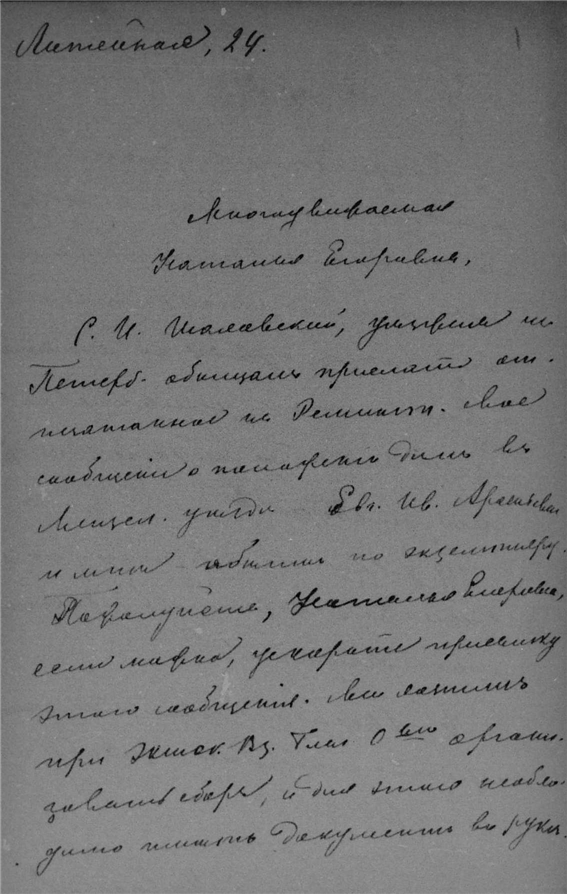 Литейная, 24.
1
Многоуважаемая
Наталья Егоровна,
С. И. Шаховский, уезжая из
Петерб. обещал прислать от-
печатанное на Ремингтн. Ваше
сообщение о положении дел в
Мензел. уезде Евг. Ив.
и мне обоим по экземпляру.
Пожалуйста, Наталья Егоровна,
если можно, ускорьте присылку
этого сообщения. Мы хотим
при Эконом. О вѣ органи-
зовать сборъ, и для этого необхо-
димо иметь документъ въ руках.